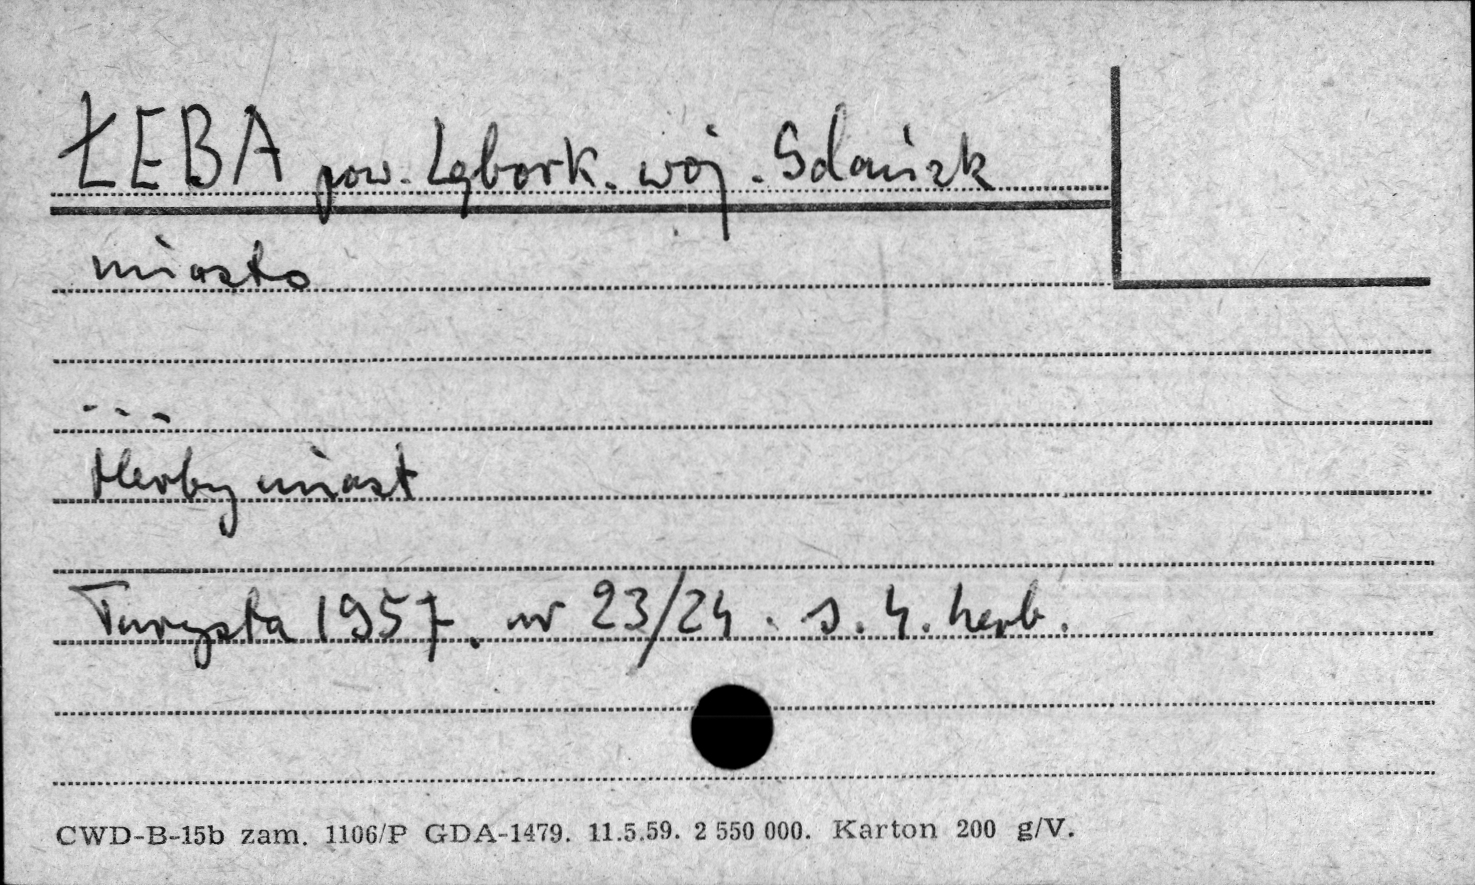 ŁEBA pow. Lębork. woj. Gdańsk
miasto
...
Herby miast
Turysta 1957. nr 23/24. s. 4. herb.
CWD-B-15b zam. 1106/P GDA-1479. 11.5.59. 2 550 000. Karton 200 g/V.